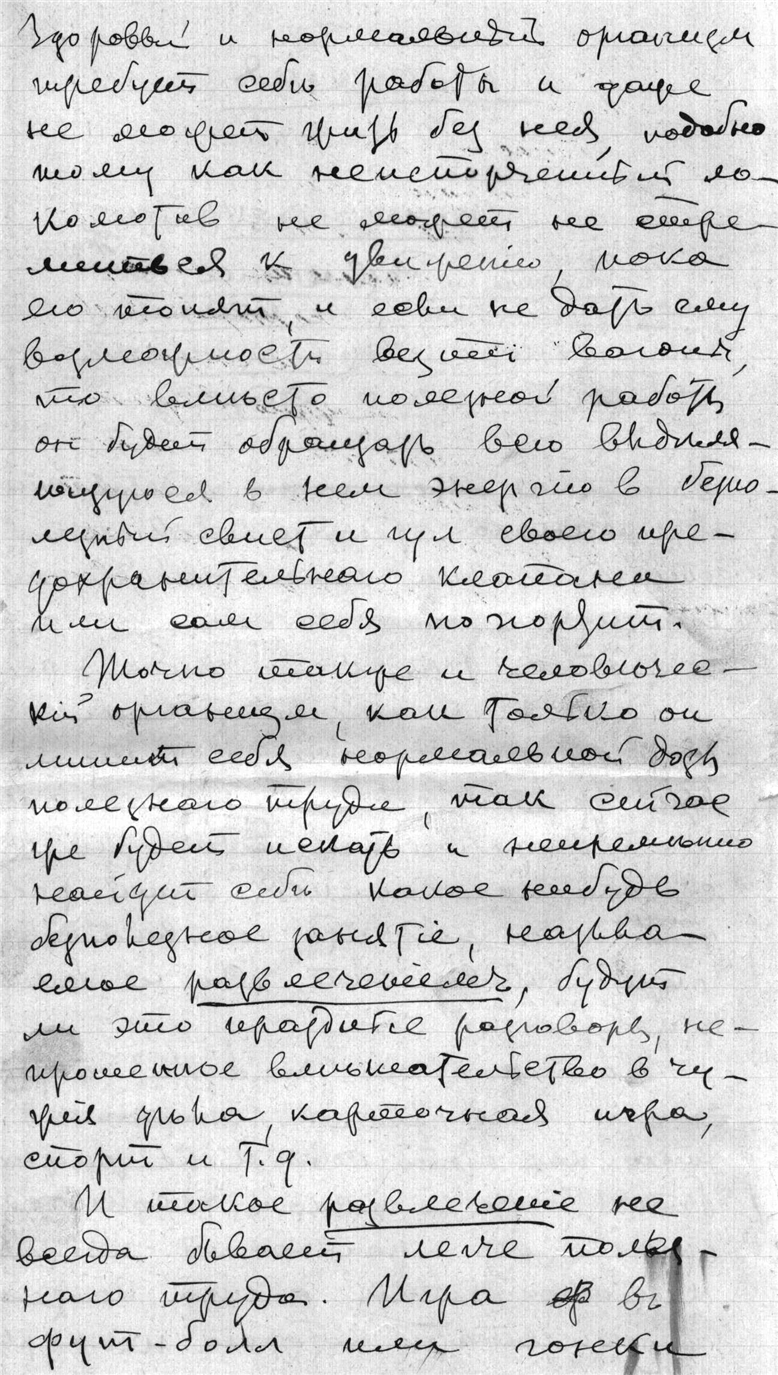 Здоровый и нормальный организм
требует себѣ работы и даже
не может жить без нея, подобно
тому как неиспорченный ло-
комотив не может не стре-
миться к движенію, пока
его топят, и если не дать ему
возможности везти вагоны,
то вмѣсто полезной работы
он будет обращать всю выдѣля-
ющуюся в нем энергію в безпо-
лезный свист и гул своего пре-
дохранительнаго клапана
или сам себя
Точно также и человѣчес-
кій организм, как только он
лишит себя нормальной дозы
полезнаго труда, так сейчас
же будет искать и непремѣнно
найдет себѣ какое нибудь
безполезное занятіе, называ-
емое развлеченіемъ, будут
ли это праздные разговоры, не-
прошенное вмѣшательство в чу-
жія дѣла, карточная игра,
спорт и т.д.
И такое развлеченіе не
всегда бывает легче полез-
наго труда. Игра въ
фут-болл или гонки